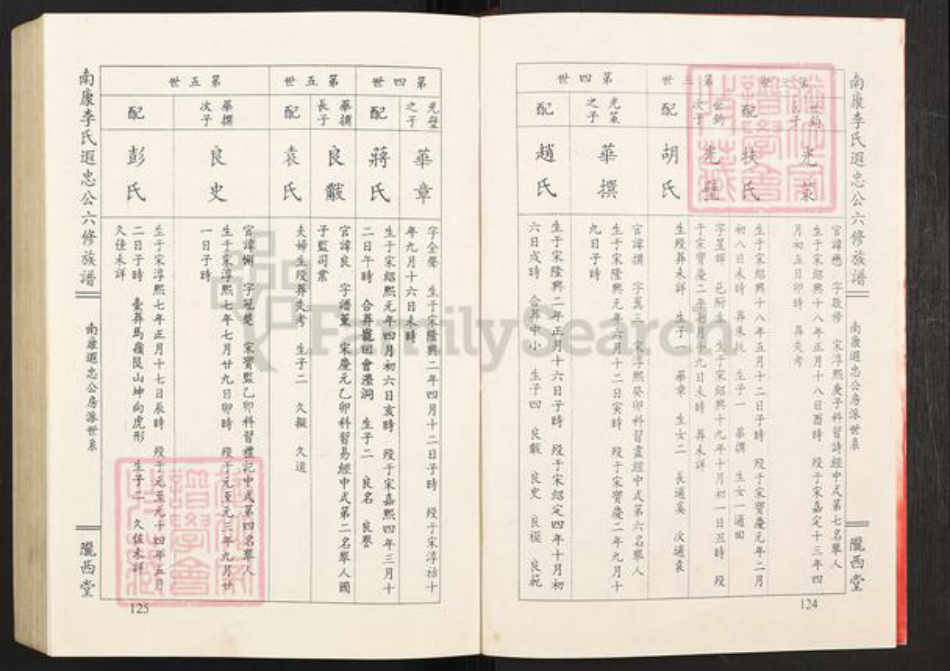 南康李氏遐忠公六修族譜
南康遐忠公房派世系
隴西堂
124
第三世
世鈞
長子
光策
官諱懋 字敬修 宋淳熙庚子科習詩經中式第七名舉人
生于宋紹興十八年正月十八日酉時 歿于宋嘉定十三年四
月初五日卯時 葬失考
配
扶氏
生于宋紹興十八年五月十二日子時 歿于宋寶慶元年二月
初八日未時 葬朱坎 生子一 華撰 生女一適田
世鈞
次子
光璧
字星輝 邑附生 生于宋紹興十九年十月初一日丑時 歿
于宋寶慶二年七月十九日未時 葬未詳
胡氏
生歿葬未詳 生子一 華章 生女二 長適奚 次適袁
第四世
光策
之子
華撰
官諱撰 字 宋淳熙癸卯科習書經中式第六名舉人
生于宋隆興元年六月十二日寅時 歿于宋寶慶二年九月十
九日子時
配
趙氏
生于宋隆興二年正月十六日子時 歿于宋紹定四年十月初
六日戌時 合葬中小 生子四 良黻 良史 良從 良範
第四世
光璧
之子
華章
字全聲 生于宋隆興二年四月十二日子時 歿于宋淳祐十
年九月十六日未時
配
蔣氏
生于宋紹熙元年四月初六日亥時 歿于宋嘉熙四年三月十
二日午時 合葬龍回會 洞 生子二 良名 良譽
第五世
華撰
長子
良黻
官諱良 字譜薰 宋慶元乙卯科習易經中式第二名舉人國
子監司業
配
袁氏
夫婦生歿葬失考 生子二 久擬 久道
第五世
華撰
次子
良史
官諱 字冠楚 宋寶監乙卯科習禮記中式第四名舉人
生于宋淳熙七年七月廿九日卯時 歿于元至元三年九月廿
一日子時
配
彭氏
生于宋淳熙七年正月十七日辰時 歿于元至元十四年五月
二日子時 葬馬嶺艮山坤向虎形 生子二 久佐未詳
久任未詳
南康李氏遐忠公六修族譜
南康遐忠公房派世系
隴西堂
125
FamilySearch